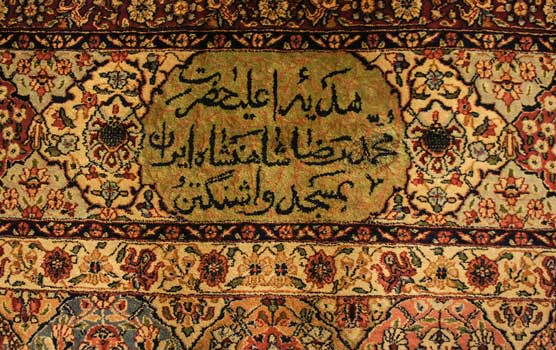 هدیهٔ اعلیحضرت
محمّدرضا شاهنشاه ایران
بمسجد واشنگتن